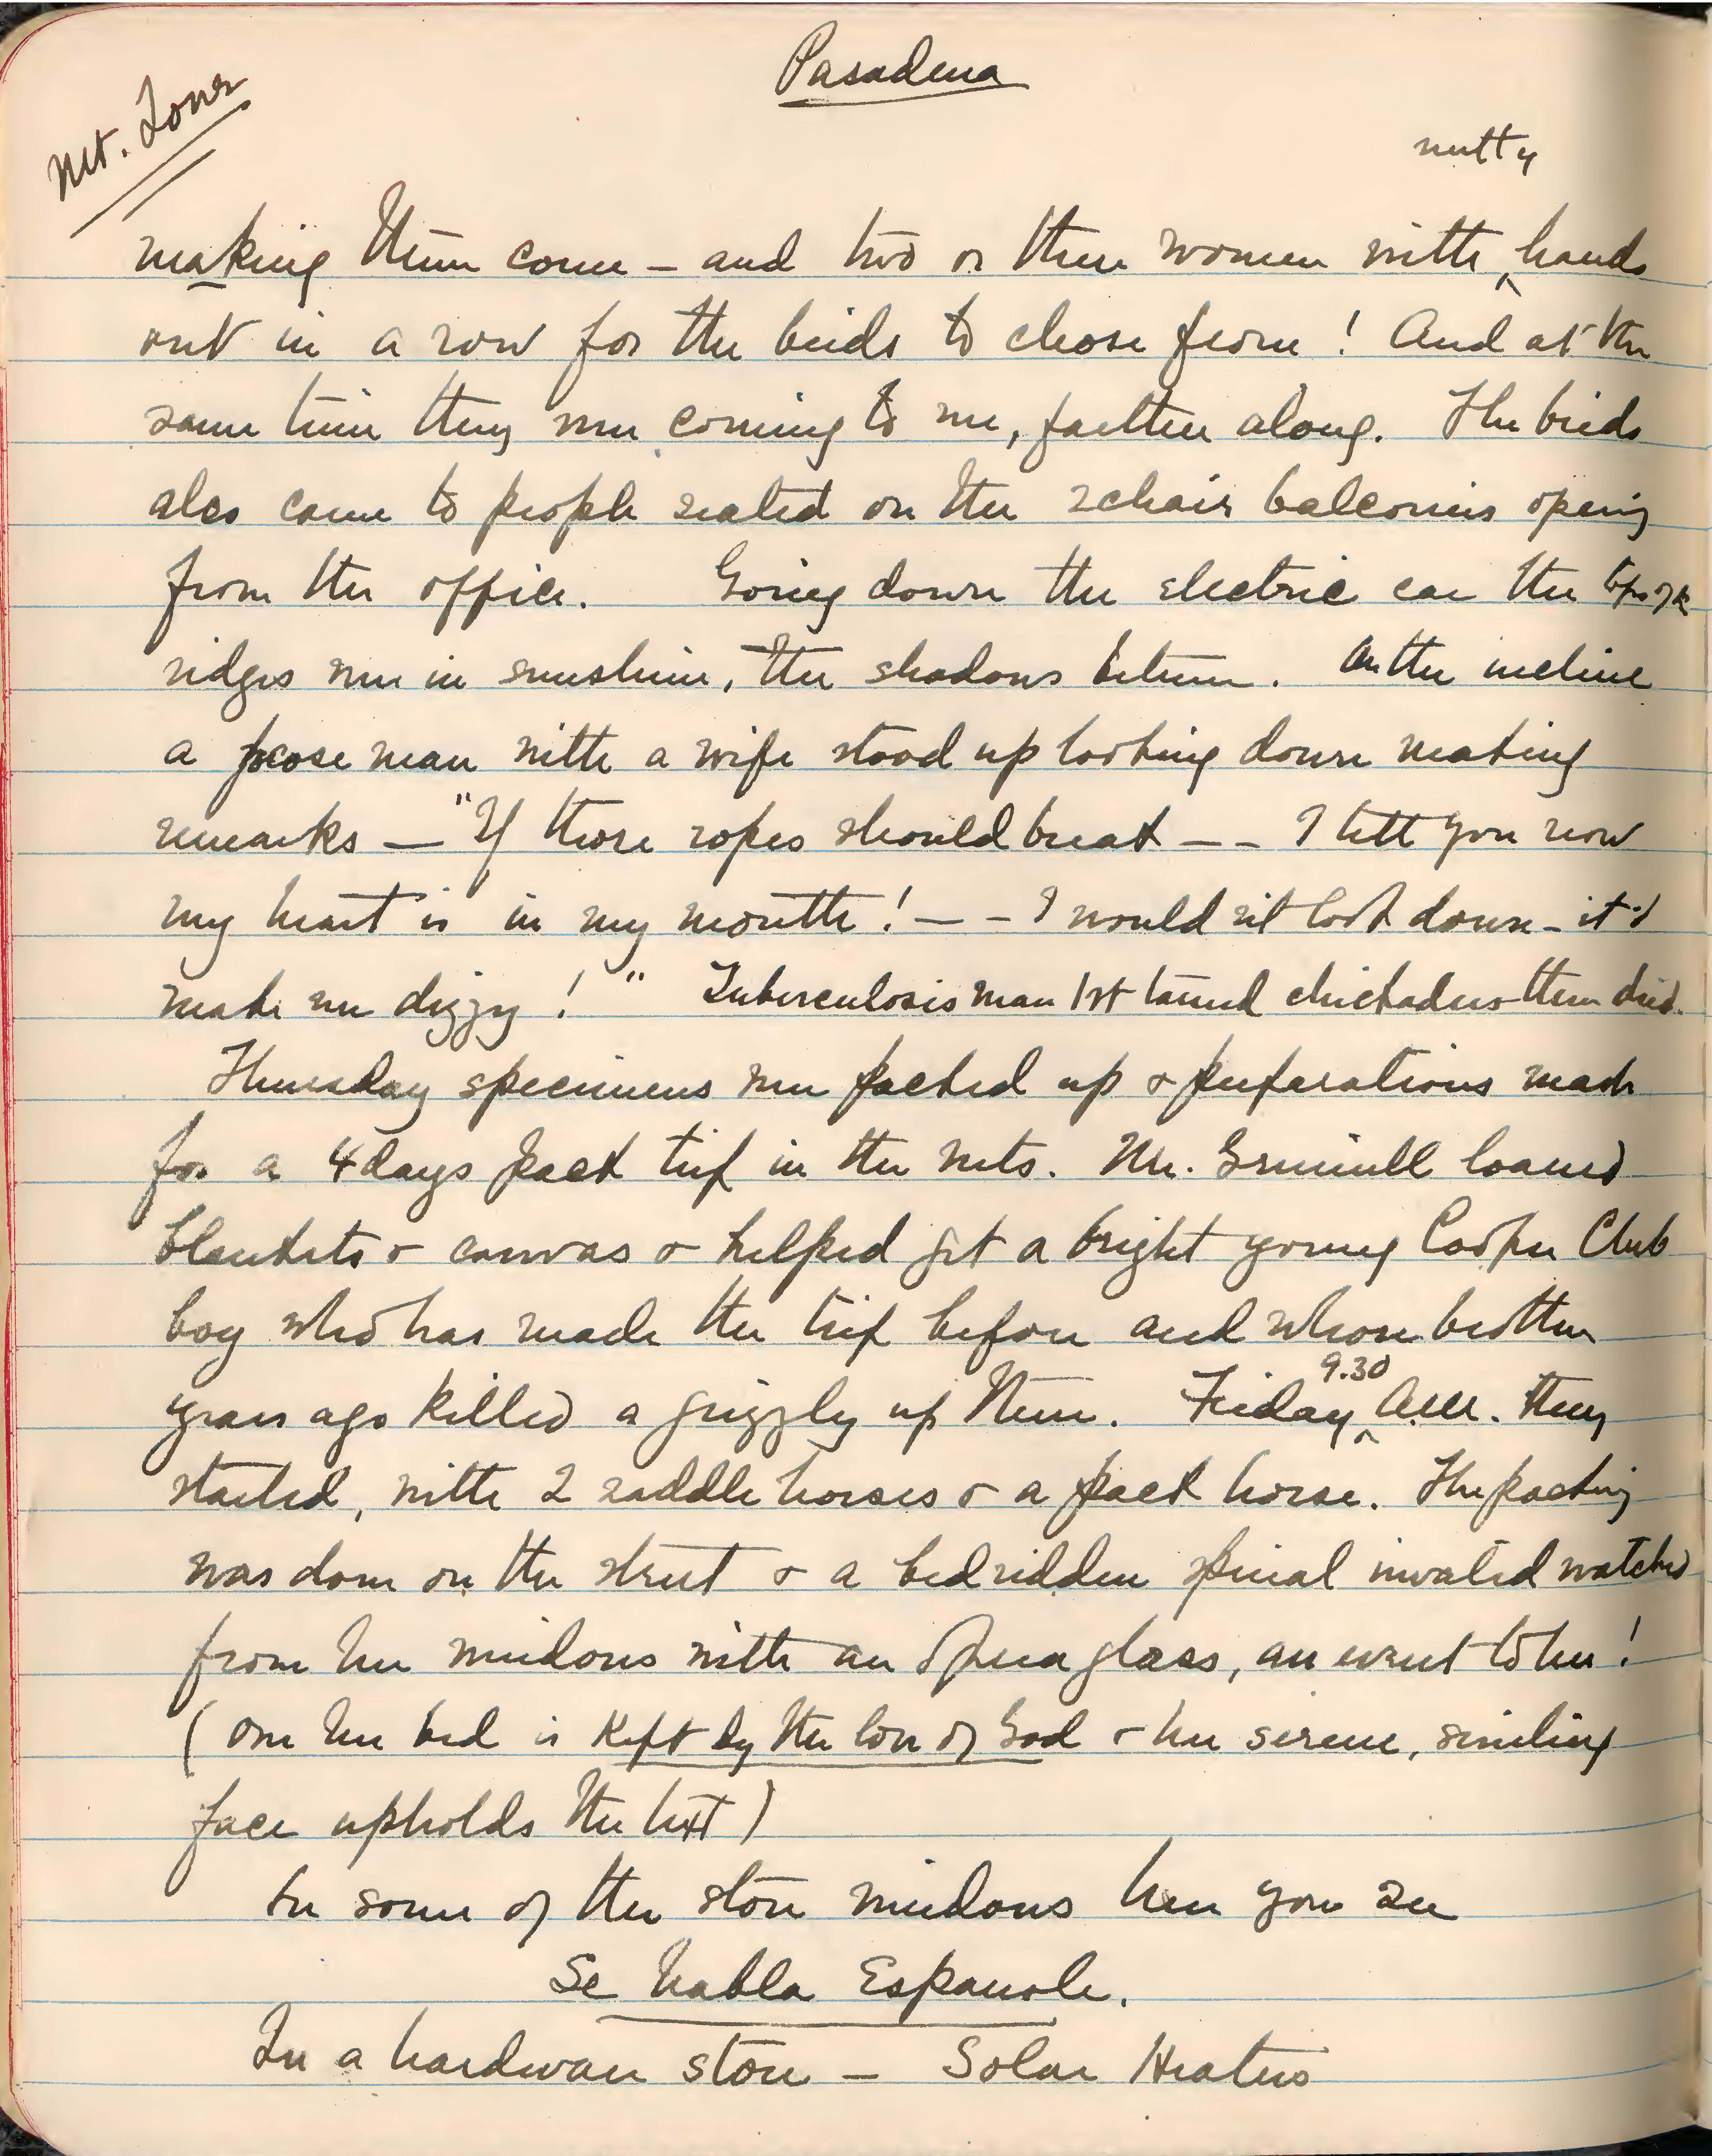 Pasadena
Mt. Lowe
nutty
making them come - and two or three women with ^ hands
out in a row for the birds to chose from! And at the
same time they were coming to me, farther along. The birds
also came to people seated on the 2chair balconies opening
from the office. Going down the electric car the tops of the
ridges were in sunshine, the shadows between. On the incline
a man with a wife stood up looking down making
remarks — "If those ropes should break -- I tell you now
my heart is in my mouth! -- I would n't look down - it'd
make me dizzy!" Tuberculosis man 1st tamed chickadees then died.
Thursday specimens were packed up & preparations made
for a 4 days pack trip in the mts. Mr. Grinnell loaned
blankets & canvas & helped get a bright young Cooper Club
boy who has made the trip before and whose brother
years ago killed a grizzly up there. Friday ^ 9.30 A.M. they
started, with 2 saddle horses & a pack horse. The packing
was done on the street & a bedridden spinal invalid watched
from her windows with an opera glass, an event to her!
(over her bed is Kept by the love of God & her serene, smiling
face upholds the text)
In some of the store windows here you see
Se habla Espanole.
In a hardware store — Solar Heaters